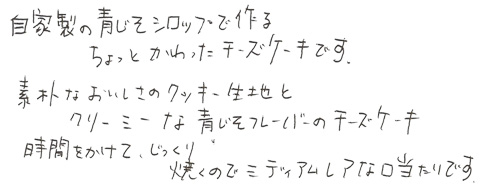 自家製の青じそシロップで作る
ちょっとかわったチーズケーキです.
素朴なおいしさのクッキー生地と
クリーミーな青じそフレーバーのチーズケーキ
時間をかけて、じっくり
焼くのでミディアムレアな口当たりです.